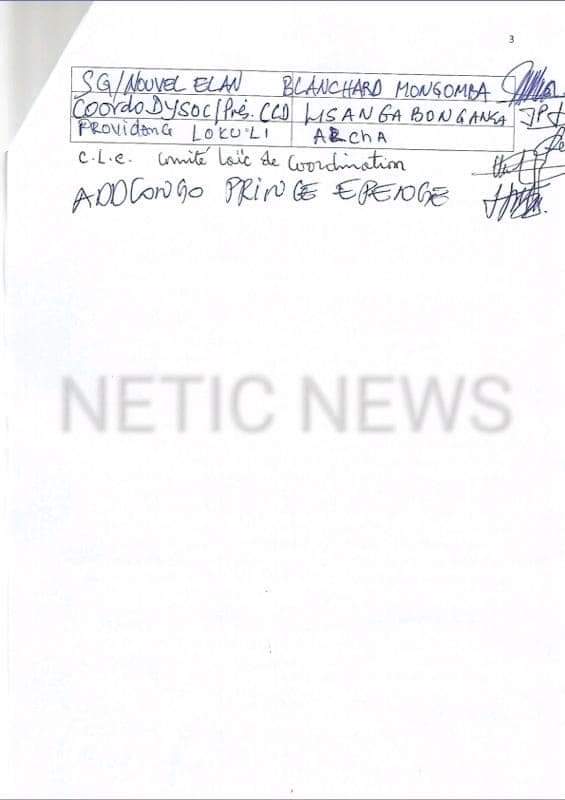 3
SG/NOUVEL ELAN BLANCHARD MONGOMBA
Coordo DYSOC/Prés. CCD LISANGA BONGANGA JPL
Providence LOKULI ARCHA
C.L.C. Comité Laïc de Coordination
ADDCONGO PRINCE EPENGE
NETIC NEWS